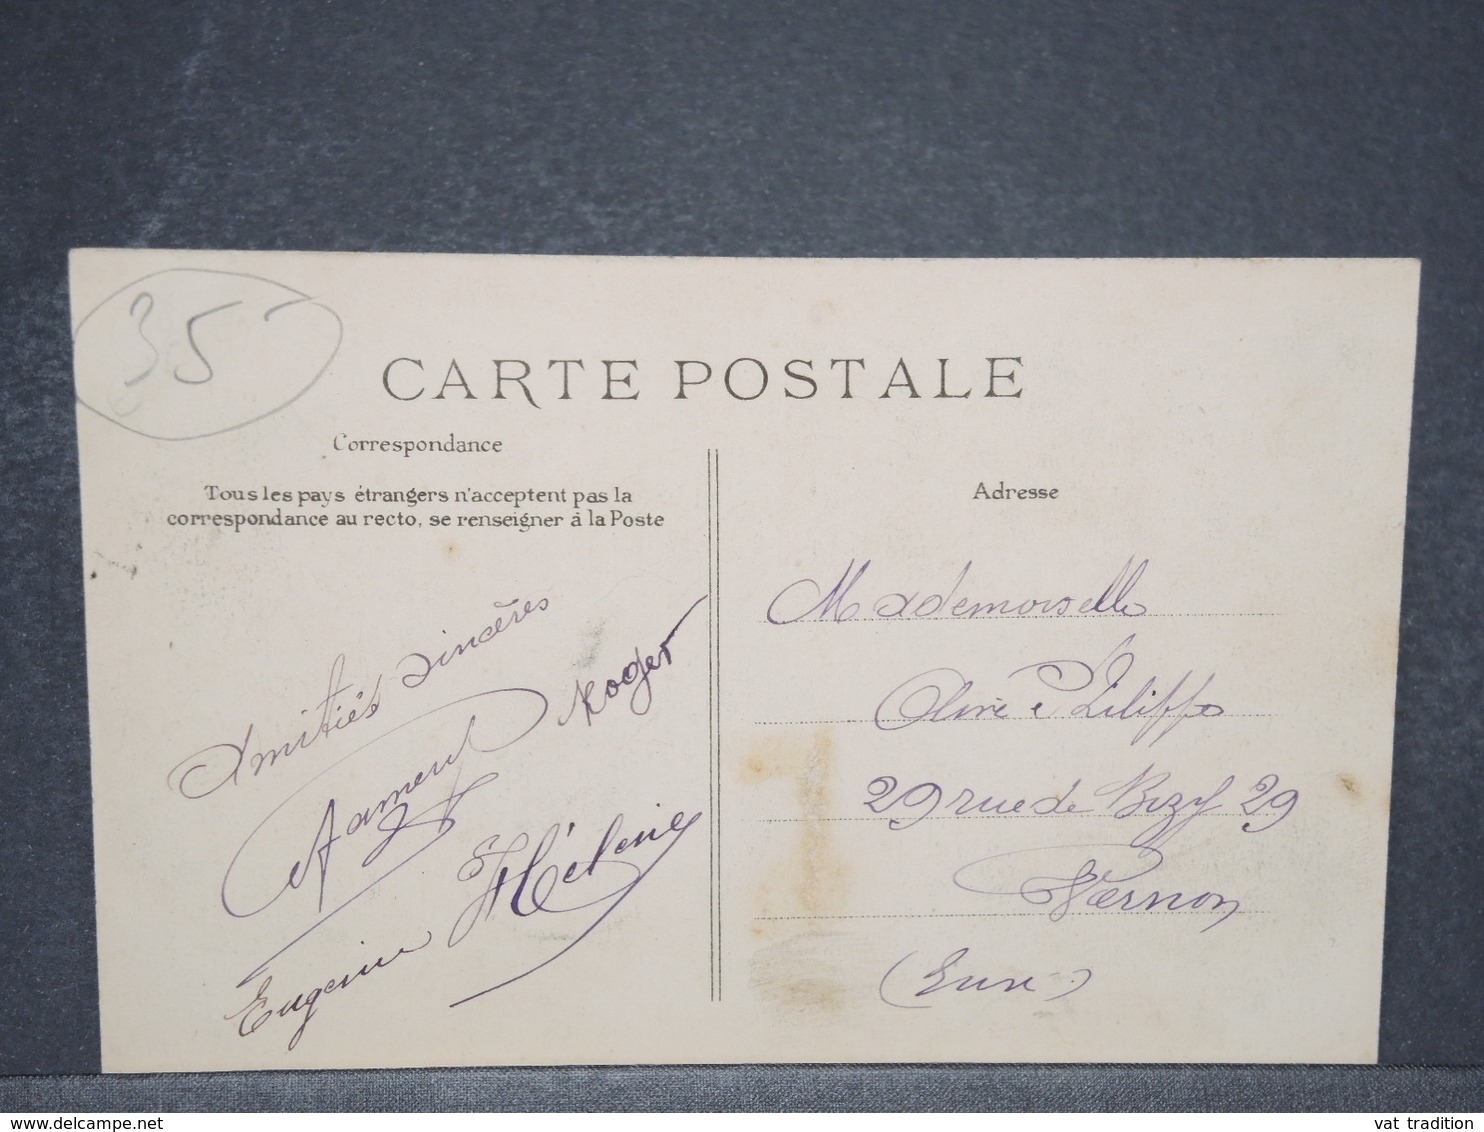 35
CARTE POSTALE
Correspondance
Tous les pays étrangers n'acceptent pas la
correspondance au recto, se renseigner à la Poste
Amitiés sincères
Roger
Hélène
Eugénie
Adresse
Mademoiselle
29 rue de Bizy 29
Vernon
(Eure)
vat tradition